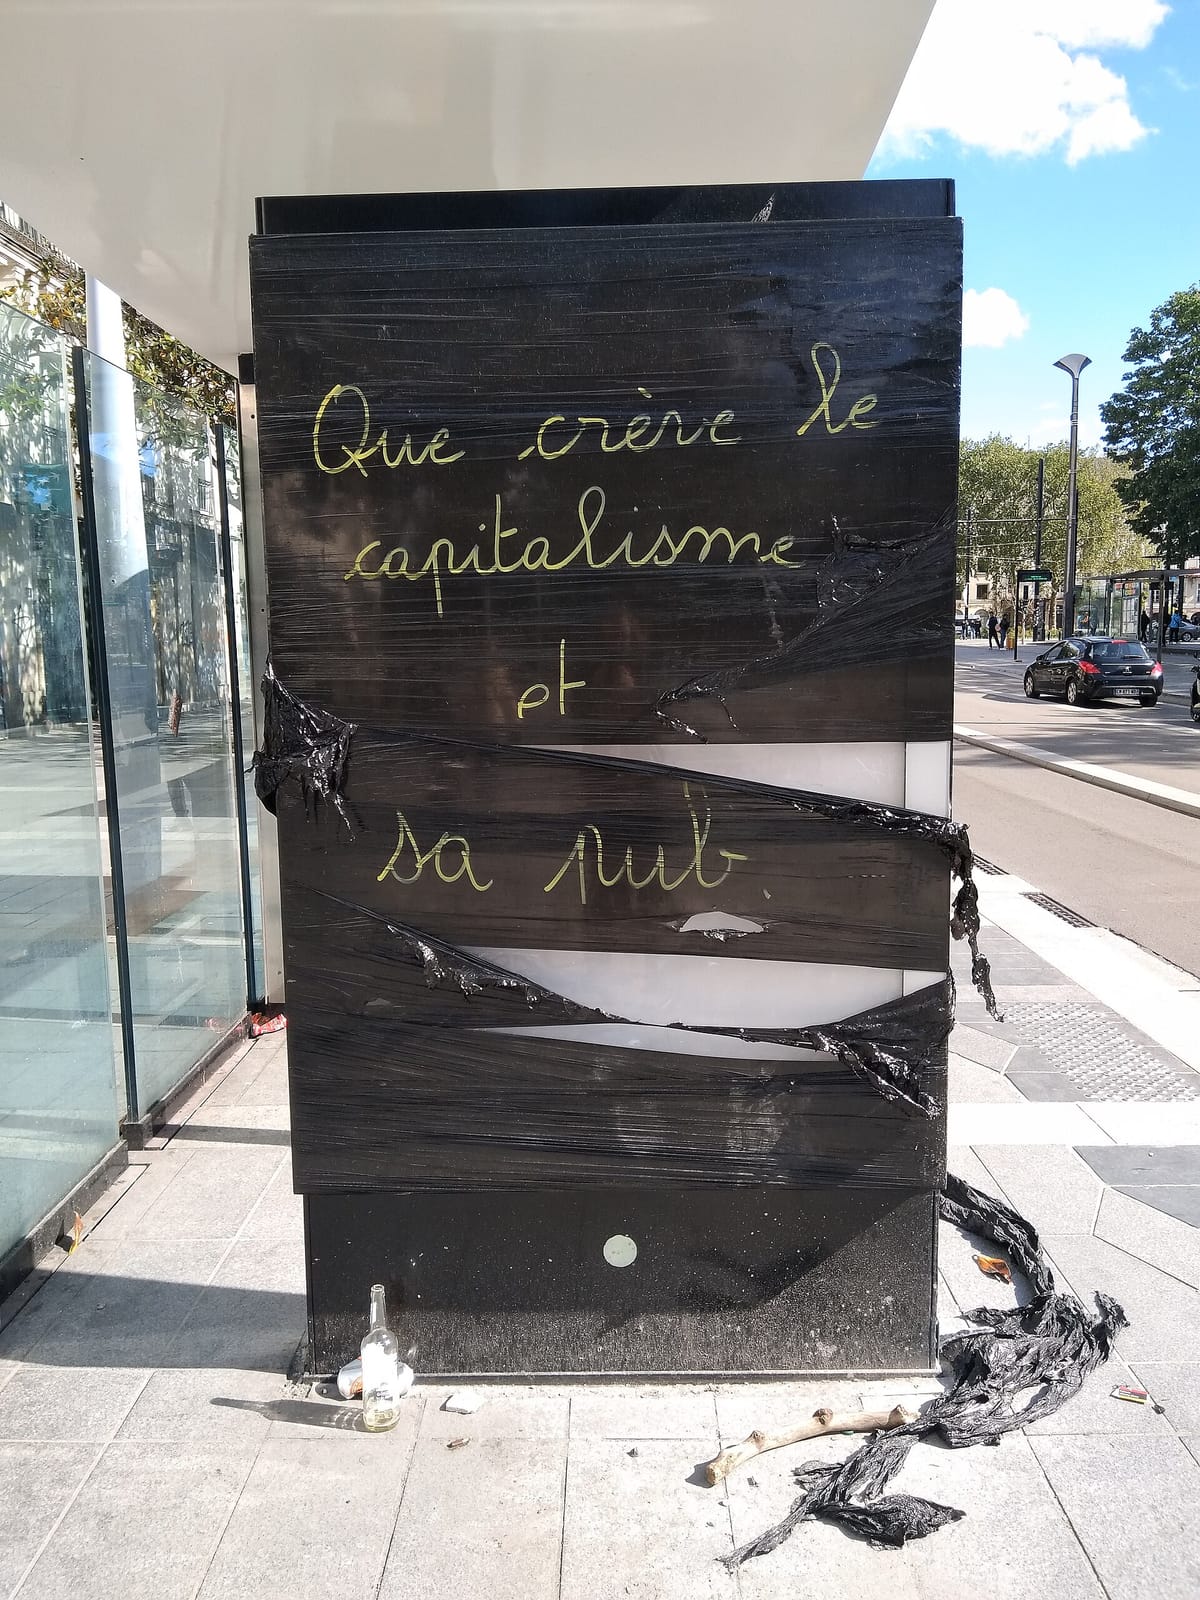 Que crève le
capitalisme
et
sa pub